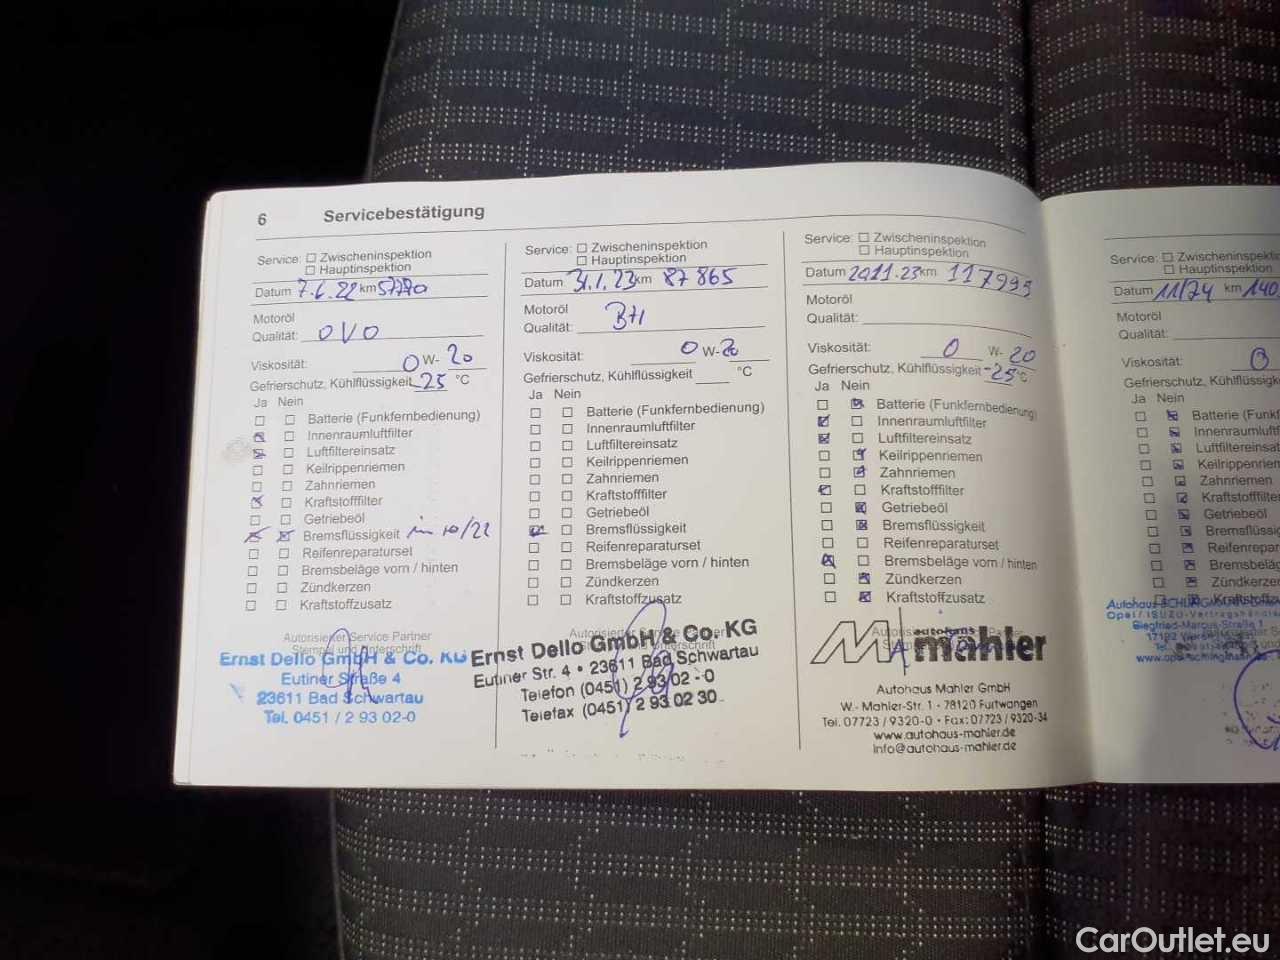 6 Servicebestätigung
Service: Zwischeninspektion
Hauptinspektion
Datum 7.6.22 km 57770
Motoröl
Qualität: OVO
Viskosität: 0 W- 20
Gefrierschutz, Kühlflüssigkeit -25 °C
Ja Nein
Batterie (Funkfernbedienung)
Innenraumluftfilter
Luftfiltereinsatz
Keilrippenriemen
Zahnriemen
Kraftstofffilter
Getriebeöl
Bremsflüssigkeit in 10/22
Reifenreparaturset
Bremsbeläge vorn / hinten
Zündkerzen
Kraftstoffzusatz
Autorisierter Service Partner
Stempel und Unterschrift
Ernst Dello GmbH & Co. KG
Eutiner Straße 4
23611 Bad Schwartau
Tel. 0451 / 2 93 02-0
Service: Zwischeninspektion
Hauptinspektion
Datum 31.1.23 km 87865
Motoröl
Qualität:
Viskosität: 0 W- 20
Gefrierschutz, Kühlflüssigkeit °C
Ja Nein
Batterie (Funkfernbedienung)
Innenraumluftfilter
Luftfiltereinsatz
Keilrippenriemen
Zahnriemen
Kraftstofffilter
Getriebeöl
Bremsflüssigkeit
Reifenreparaturset
Bremsbeläge vorn / hinten
Zündkerzen
Kraftstoffzusatz
Autorisierter Service Partner
Ernst Dello GmbH & Co. KG
Eutiner Str. 4 • 23611 Bad Schwartau
Telefon (0451) 2 93 02 - 0
Telefax (0451) 2 93 02 30
Service: Zwischeninspektion
Hauptinspektion
Datum 20.11.23 km 117995
Motoröl
Qualität:
Viskosität: 0 W- 20
Gefrierschutz, Kühlflüssigkeit -25 °C
Ja Nein
Batterie (Funkfernbedienung)
Innenraumluftfilter
Luftfiltereinsatz
Keilrippenriemen
Zahnriemen
Kraftstofffilter
Getriebeöl
Bremsflüssigkeit
Reifenreparaturset
Bremsbeläge vorn / hinten
Zündkerzen
Kraftstoffzusatz
autohaus
mahler
Autohaus Mahler GmbH
W.- Mahler-Str. 1 • 78120 Furtwangen
Tel. 07723 / 9320-0 • Fax: 07723 / 9320-34
www.autohaus-mahler.de
info@autohaus-mahler.de
Service: Zwischeninspekti
Hauptinspektion
Datum 11/24 km 140
Motoröl
Qualität:
Viskosität: 0
Gefrierschutz, Kühlflüssi
Ja Nein
Batterie (Funkf
Innenraumluftf
Luftfiltereinsat
Keilrippenriem
Zahnriemen
Kraftstofffilter
Getriebeöl
Bremsflüssig
Reifenrepar
Bremsbeläg
Zündkerzen
Kraftstoffzu
Opel / ISUZU-Vertragshändle
Siegfried-Marcus-Straße 1
CarOutlet.eu